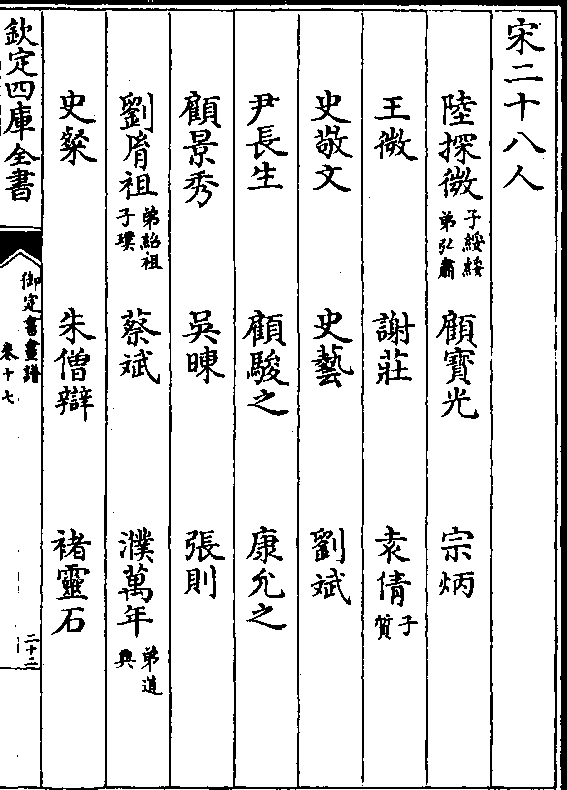 宋二十八人
陸探微 子綏綏 弟弘肅 顧寶光 宗炳
王微 謝莊 袁倩 子質
史敬文 史藝 劉斌
尹長生 顧駿之 康允之
顧景秀 吳暕 張則
劉胤祖 弟紹祖 子璞 蔡斌 濮萬年 弟道興
史粲 朱僧辯 褚靈石
欽定四庫全書
御定書畫譜
卷十七
二十二